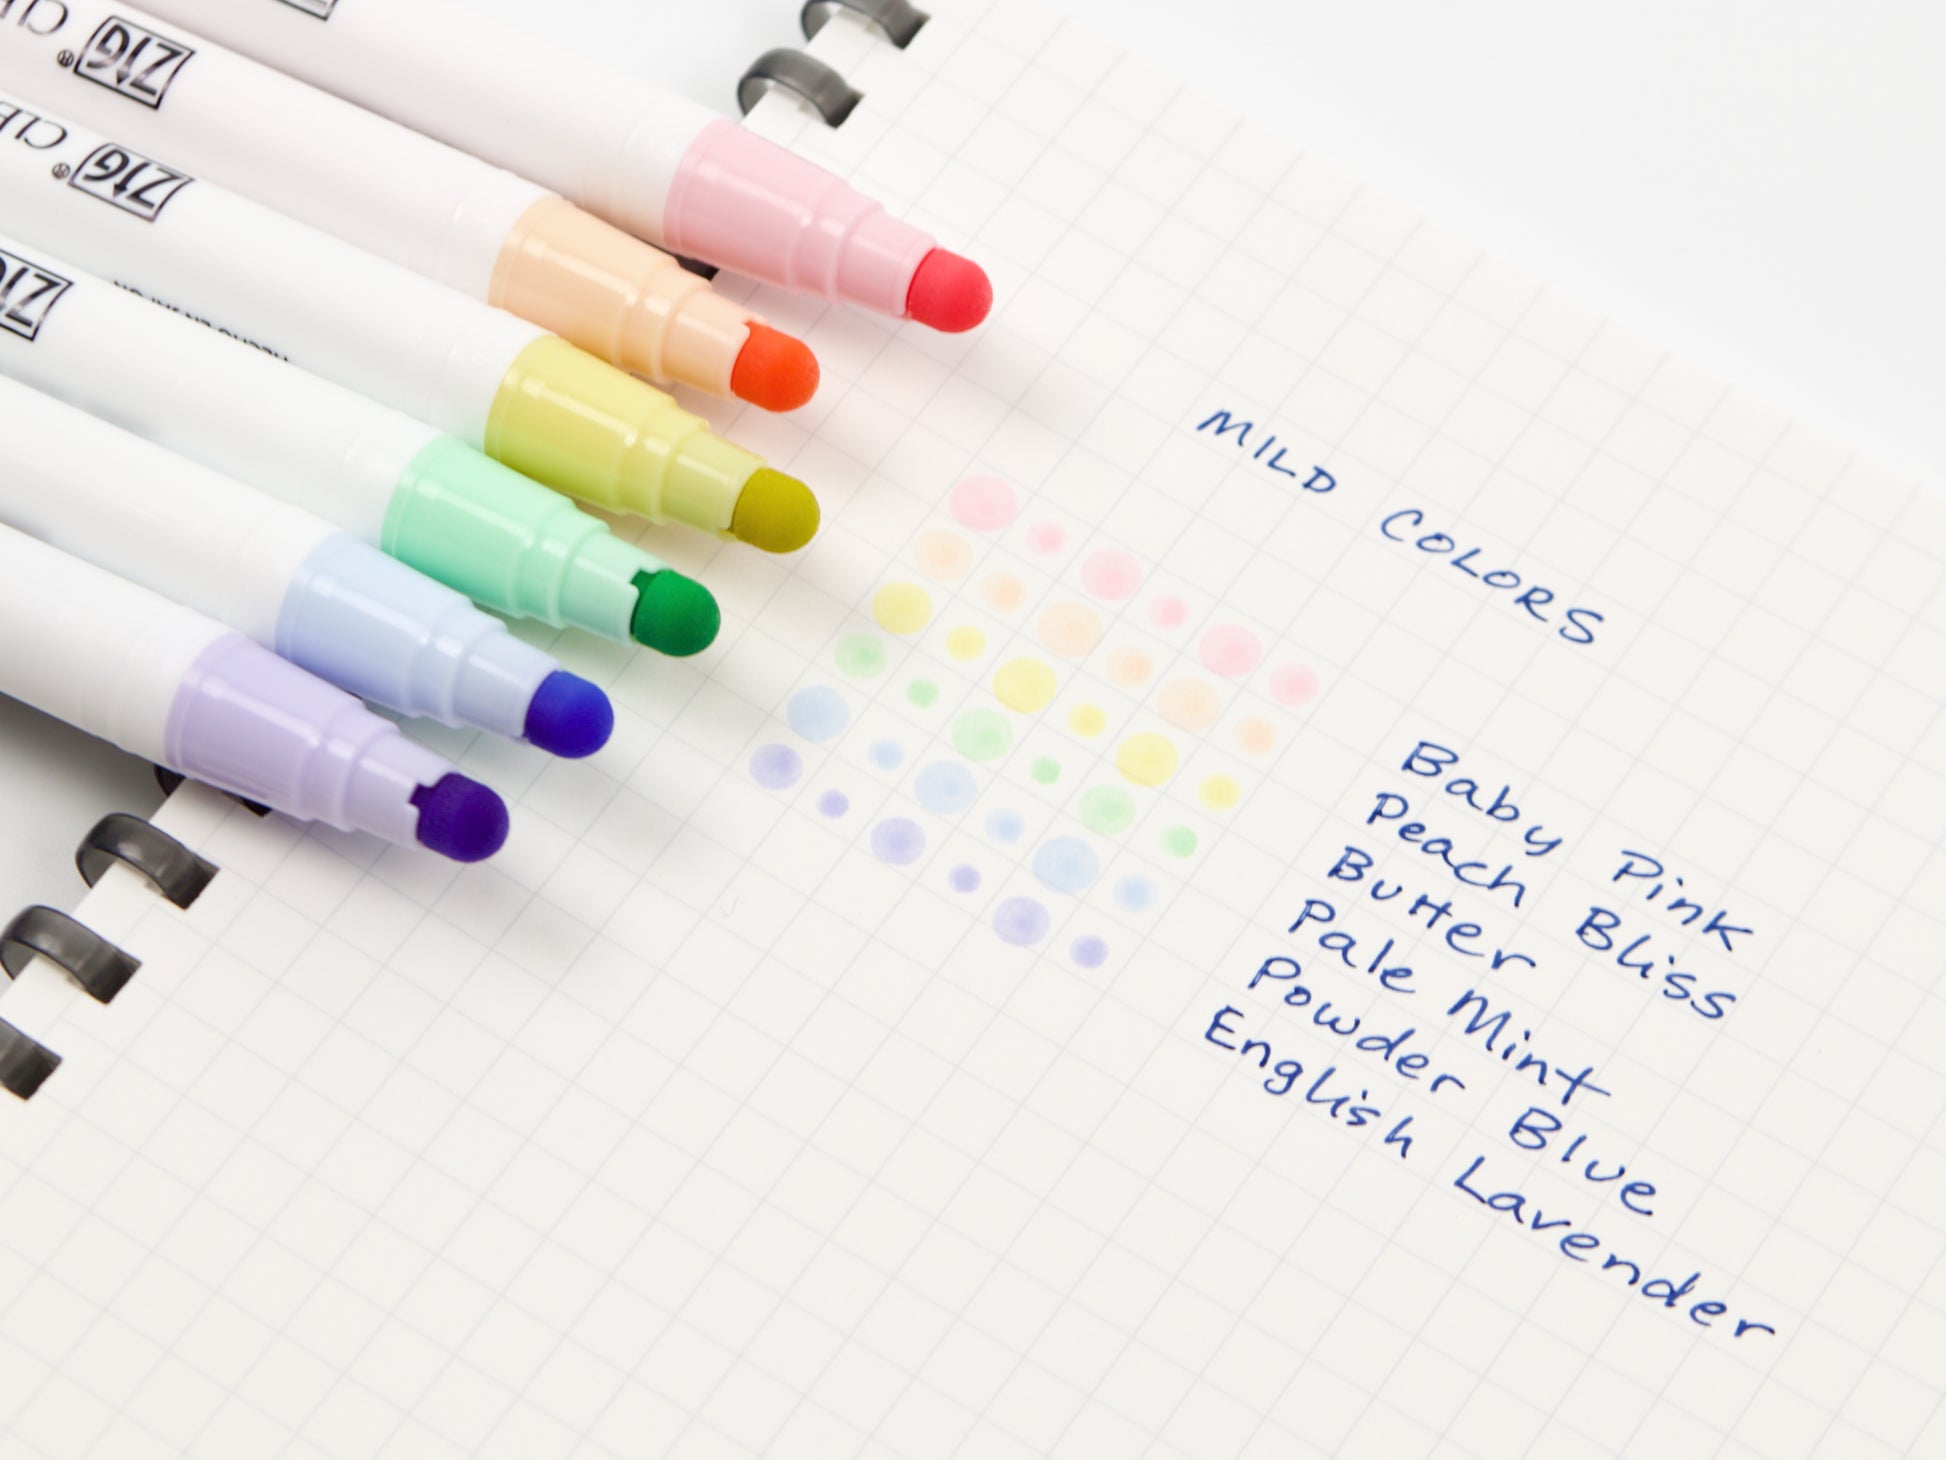 MILD COLORS
Baby Pink
Peach Bliss
Butter
Pale Mint
Powder Blue
English Lavender
ZIG®
ZIG®
ZIG